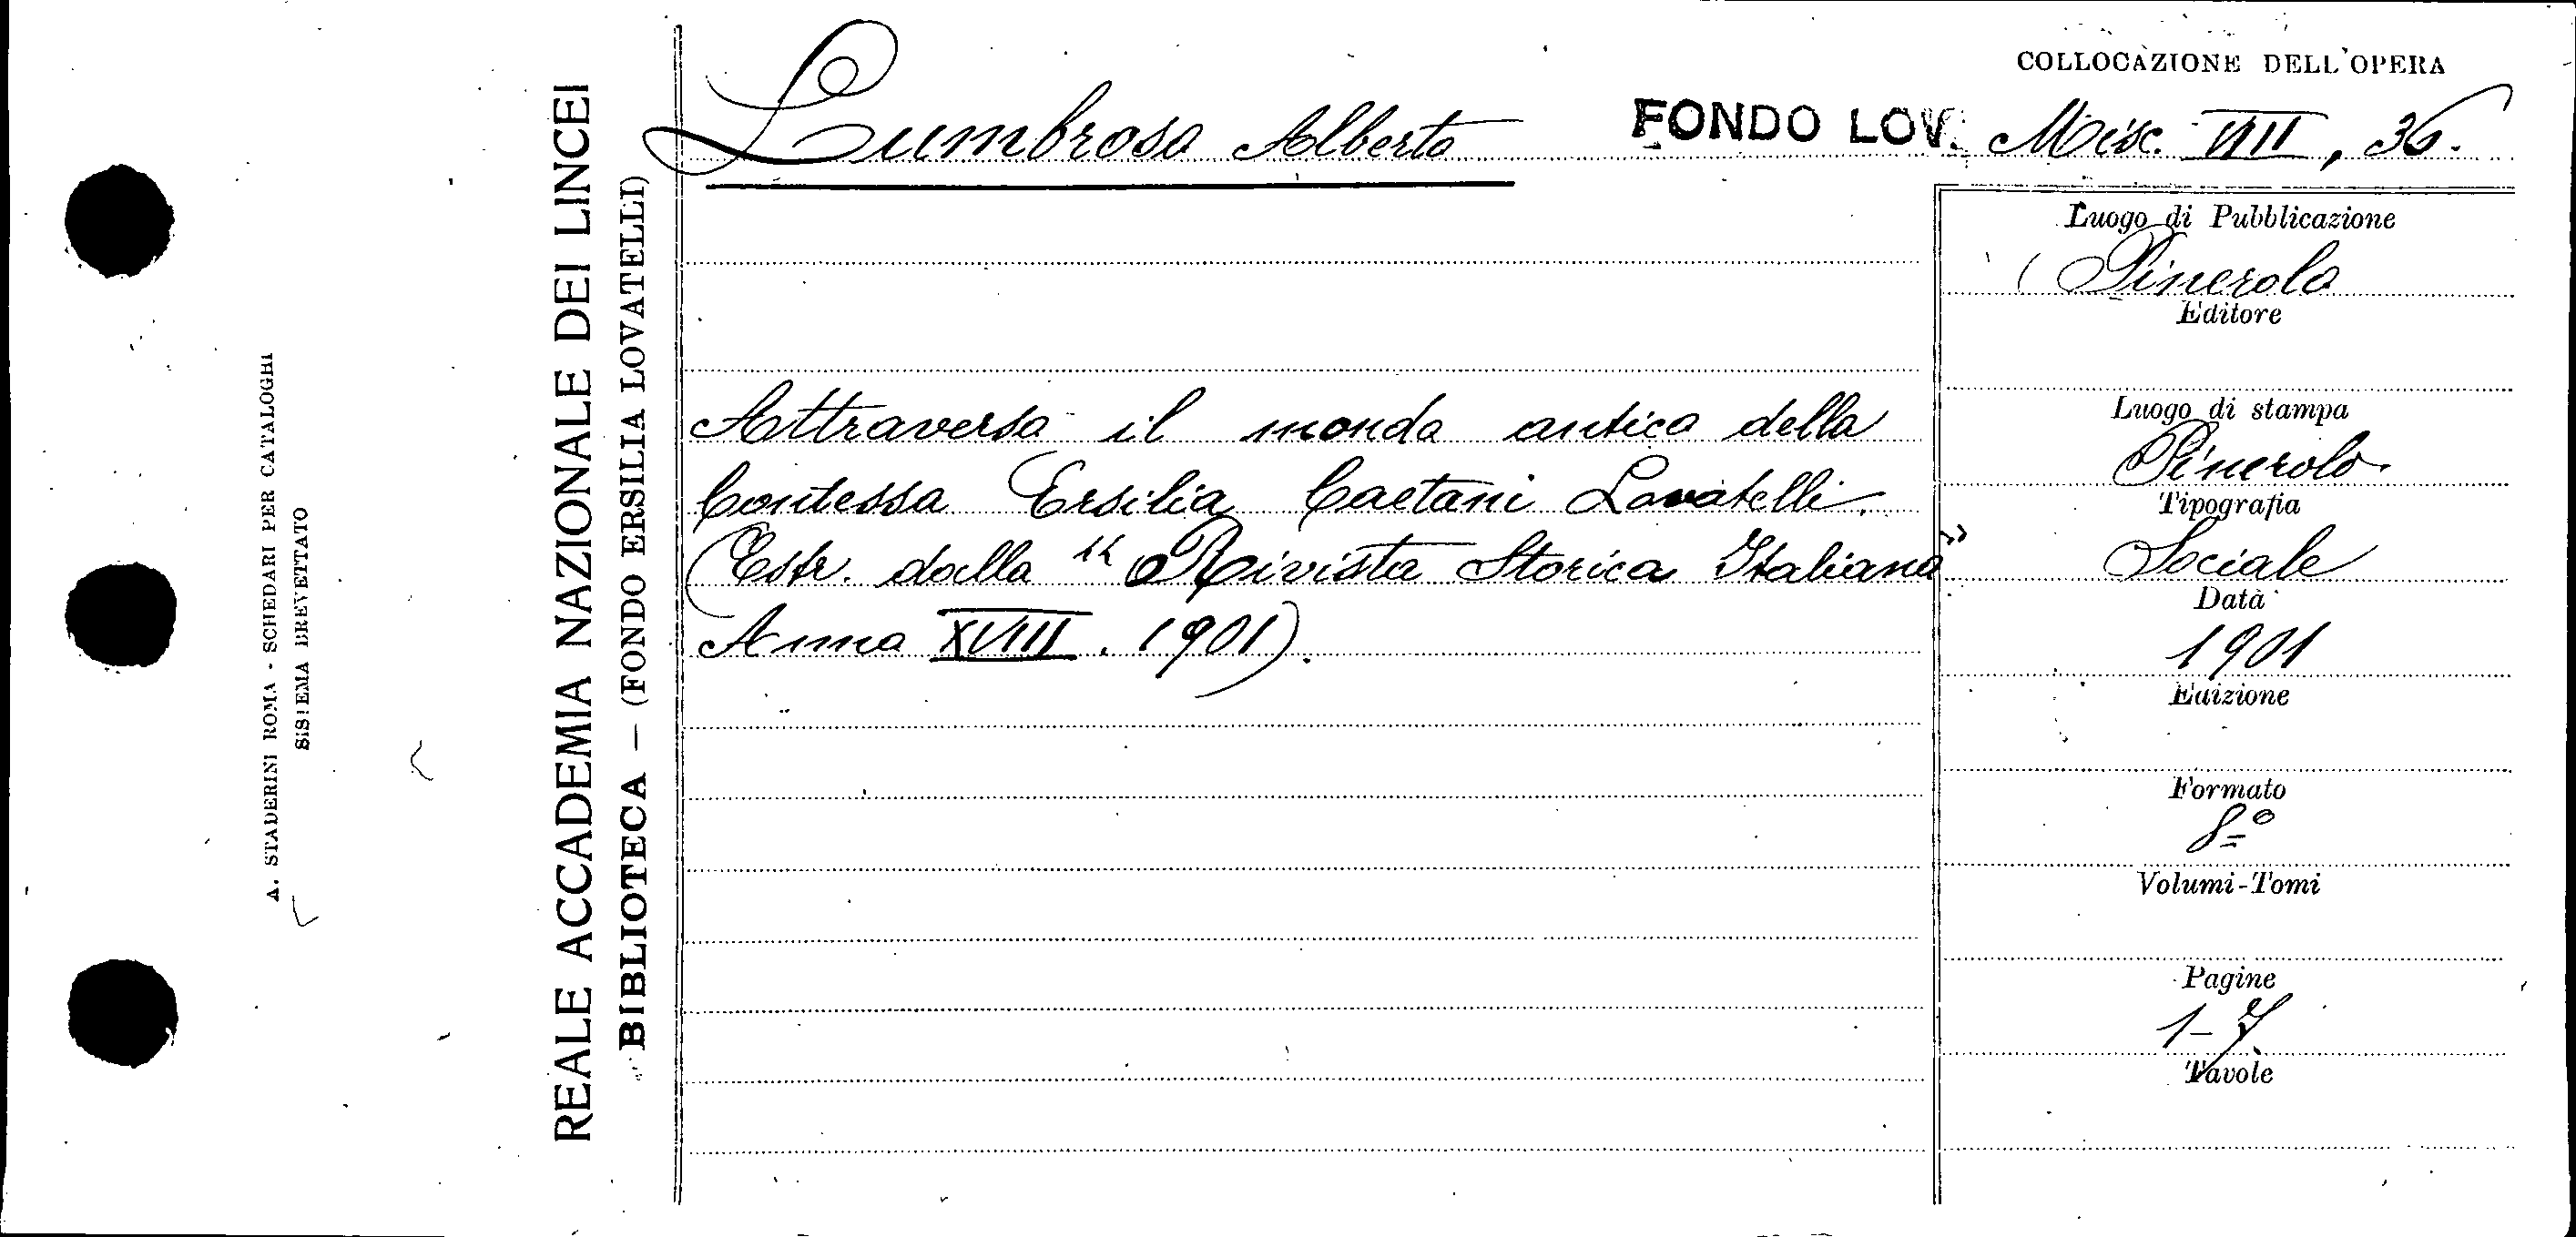 A. STADERINI ROMA - SCHEDARI PER CATALOGHI
SISTEMA BREVETTATO
REALE ACCADEMIA NAZIONALE DEI LINCEI
BIBLIOTECA — (FONDO ERSILIA LOVATELLI)
COLLOCAZIONE DELL'OPERA
Lumbroso Alberto
FONDO LOV. Misc. VIII, 36.
Attraverso il mondo antico della
Contessa Ersilia Caetani Lovatelli.
(Estr. dalla "Rivista Storica Italiana"
Anno XVIII. 1901).
Luogo di Pubblicazione
(Pinerolo
Editore
Luogo di stampa
Pinerolo.
Tipografia
Sociale
Data
1901
Edizione
Formato
8°
Volumi-Tomi
Pagine
1-7.
Tavole